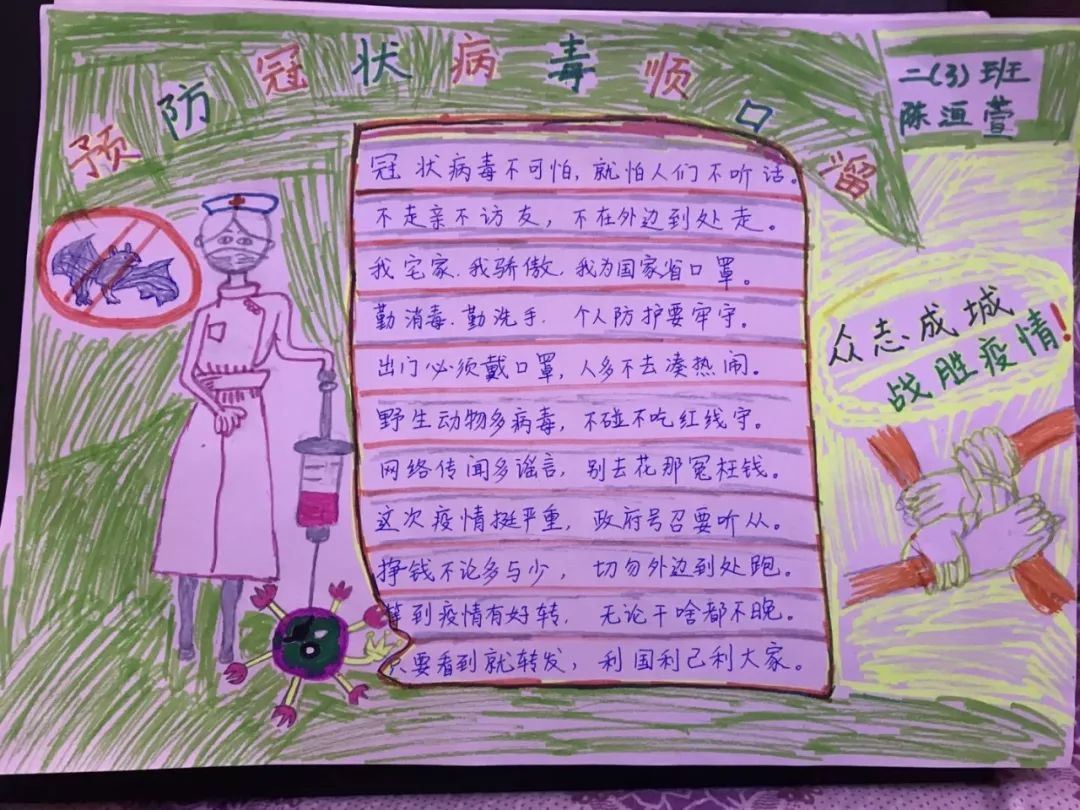 预防冠状病毒顺口溜
二(3)班
陈洹萱
冠状病毒不可怕,就怕人们不听话。
不走亲不访友,不在外边到处走。
我宅家.我骄傲,我为国家省口罩。
勤消毒.勤洗手.个人防护要牢守。
出门必须戴口罩,人多不去凑热闹。
野生动物多病毒,不碰不吃红线守。
网络传闻多谣言,别去花那冤枉钱。
这次疫情挺严重,政府号召要听从。
挣钱不论多与少,切勿外边到处跑。
等到疫情有好转,无论干啥都不晚。
只要看到就转发,利国利己利大家。
众志成城
战胜疫情!